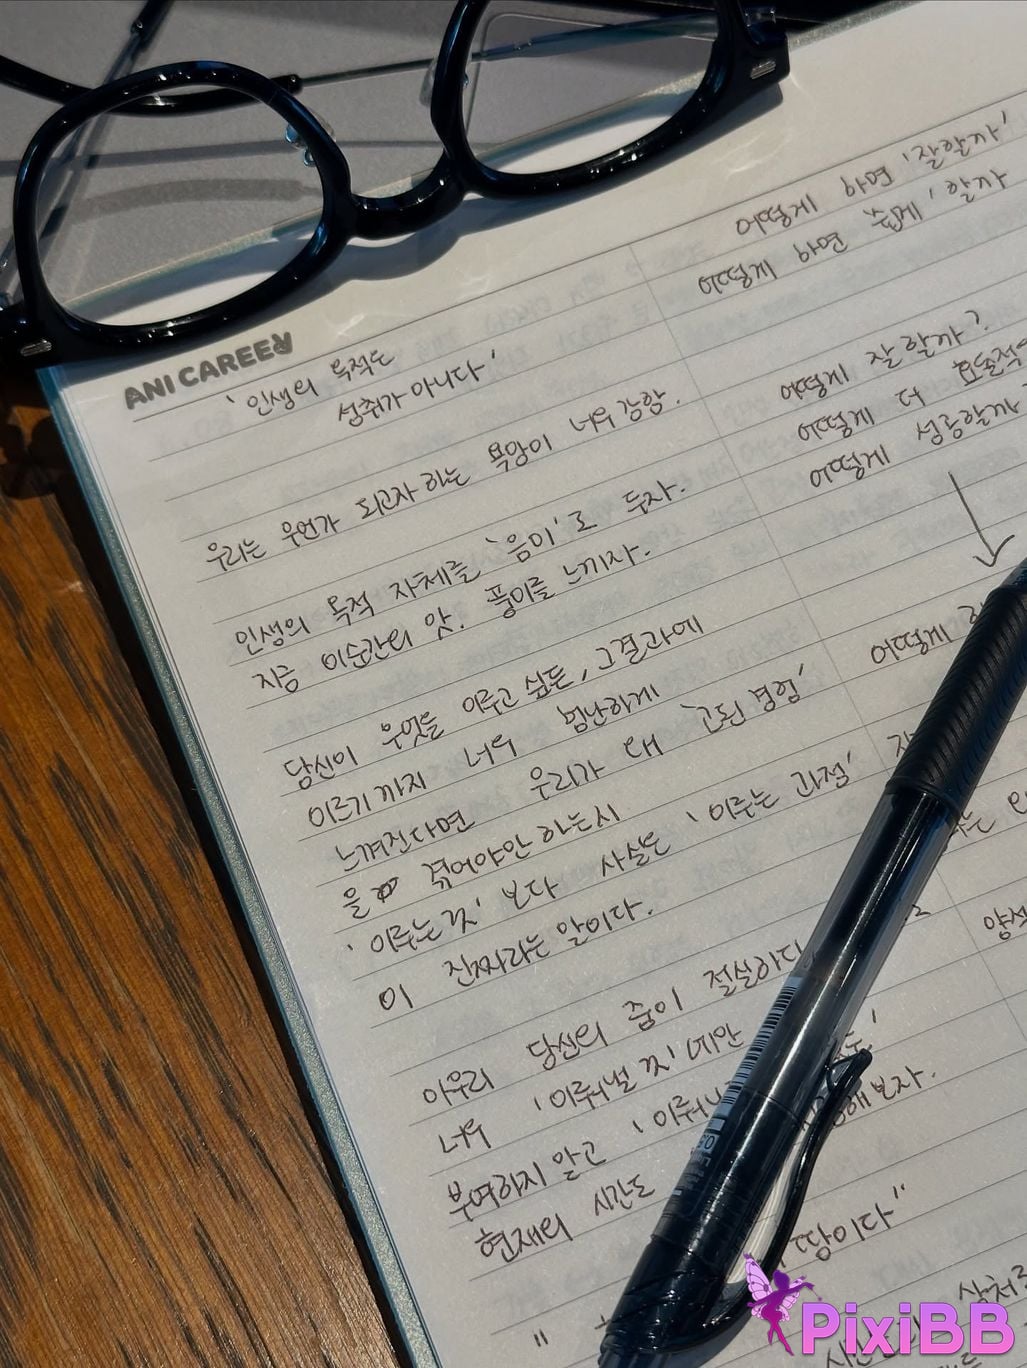 ANI CAREER
'인생의 목적은
성취가 아니다'
우리는 무언가 되고자 하는 욕망이 너무 강함.
인생의 목적 자체를 '음미'로 두자.
지금 이순간의 맛. 풍미를 느끼자.
당신이 무엇을 이루고 싶든, 그 결과에
이르기까지 너무 험난하게
느껴진다면 우리가 왜 '고된 경험'
을 겪어야만 하는지
'이루는 것' 보다 사실은 '이루는 과정'
이 진짜라는 말이다.
아무리 당신의 꿈이 절실하다
너무 '이뤄낼 것'에만
부여하지 말고 '이뤄
현재의 시간도 해보자.
땅이다"
어떻게 하면 '잘할까'
어떻게 하면 '쉽게' 할까
어떻게 잘 할까?
어떻게 더 효율적
어떻게 성공할까
어떻게
PixiBB